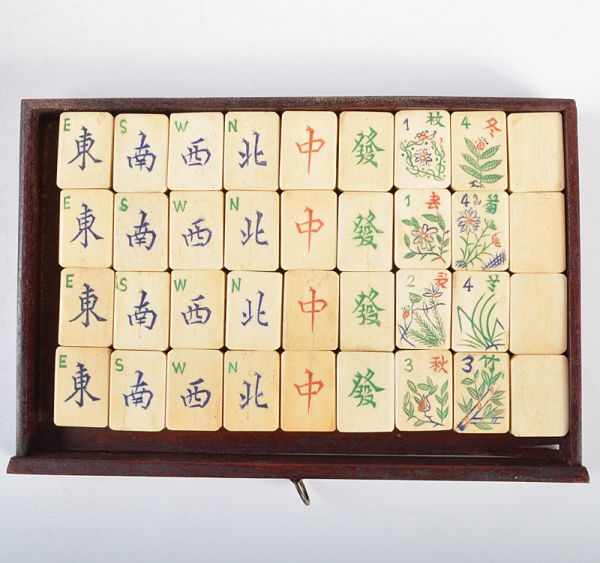 E 東 S 南 W 西 N 北 中 發 1 枝 4 冬
E 東 S 南 W 西 N 北 中 發 1 4 菊
E 東 S 南 W 西 N 北 中 發 2 4
E 東 S 南 W 西 N 北 中 發 3 秋 3 竹